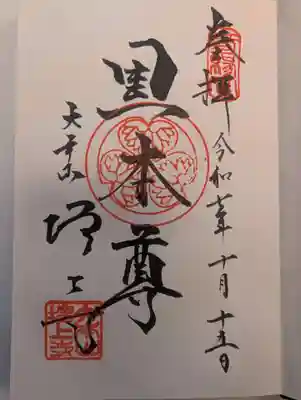 奉拝
令和七年十月十五日
黒本尊
大本山
増上寺